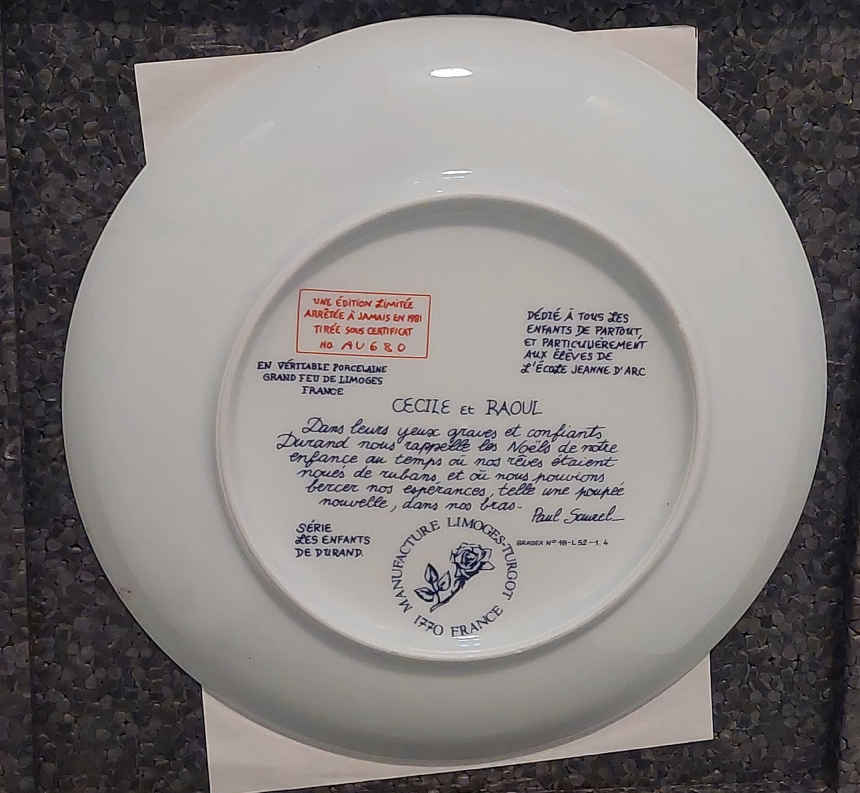 UNE ÉDITION LIMITÉE
ARRÊTÉE À JAMAIS EN 1981
TIRÉE SOUS CERTIFICAT
NO. AU680
EN VÉRITABLE PORCELAINE
GRAND FEU DE LIMOGES
FRANCE
DÉDIÉ À TOUS LES
ENFANTS DE PARTOUT,
ET PARTICULIEREMENT
AUX ÉLÈVES DE
L'ÉCOLE JEANNE D'ARC
CECILE et RAOUL
Dans leurs yeux graves et confiants,
Durand nous rappelle les Noëls de notre
enfance au temps où nos rêves étaient
noués de rubans, et où nous pouvions
bercer nos espérances, telle une poupée
nouvelle, dans nos bras.
Paul Saurel
SÉRIE
LES ENFANTS
DE DURAND.
BRADEX Nº 18-L52-1.4
MANUFACTURE LIMOGES-TURGOT
1770 FRANCE